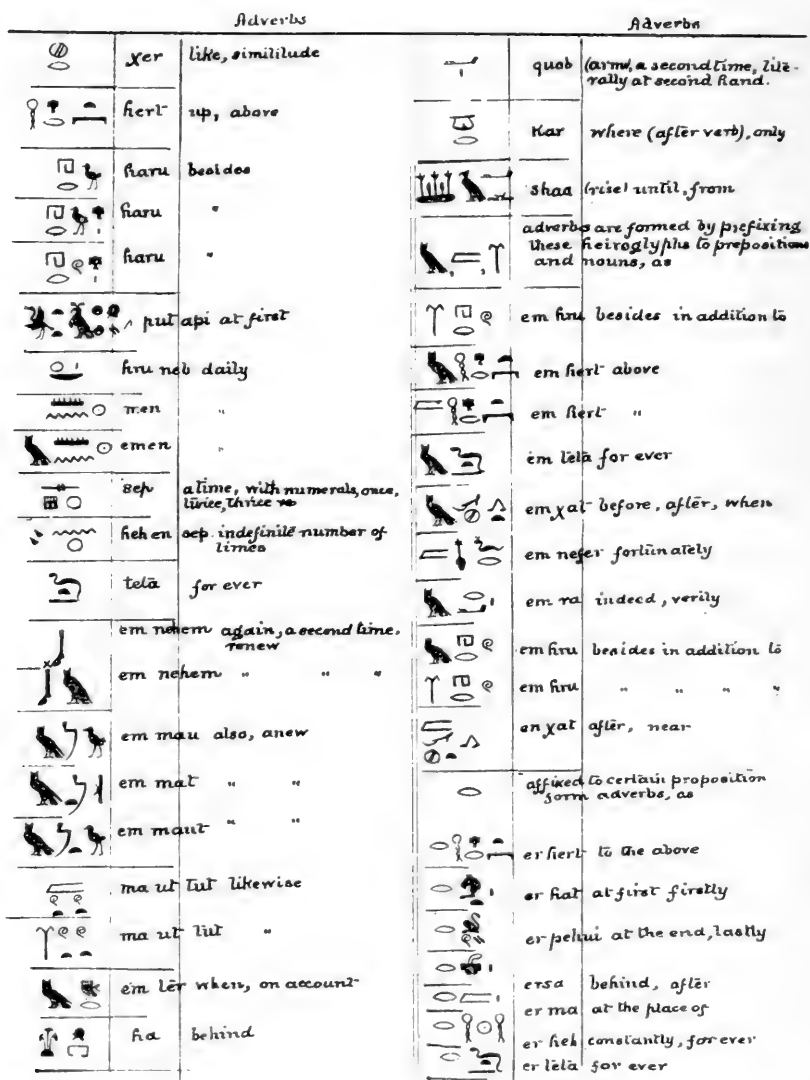 Adverbs
χer like, simililude
hert up, above
haru besides
haru "
haru "
put api at first
hru neb daily
men "
emen "
sep a time, with numerals, once,
twice, thrice
heh en sep. indefinite number of
times
tetā for ever
em nehem again, a second time,
renew
em nehem " " "
em mau also, anew
em mat " "
em maut " "
ma ut tut likewise
ma ut tut "
em ter when, on account
ha behind
Adverbs
quob (arm), a second time, lite-
rally at second hand.
Kar where (after verb), only
shaa (rise) until, from
adverbs are formed by prefixing
these heiroglyphs to prepositions
and nouns, as
em hru besides in addition to
em hert above
em hert "
em tetā for ever
em χat before, after, when
em nefer fortunately
em ra indeed, verily
em hru besides in addition to
em hru " " " "
en χat after, near
affixed to certain proposition
form adverbs, as
er hert to the above
er hat at first firstly
er pehui at the end, lastly
ersa behind, after
er ma at the place of
er heh constantly, for ever
er tetā for ever